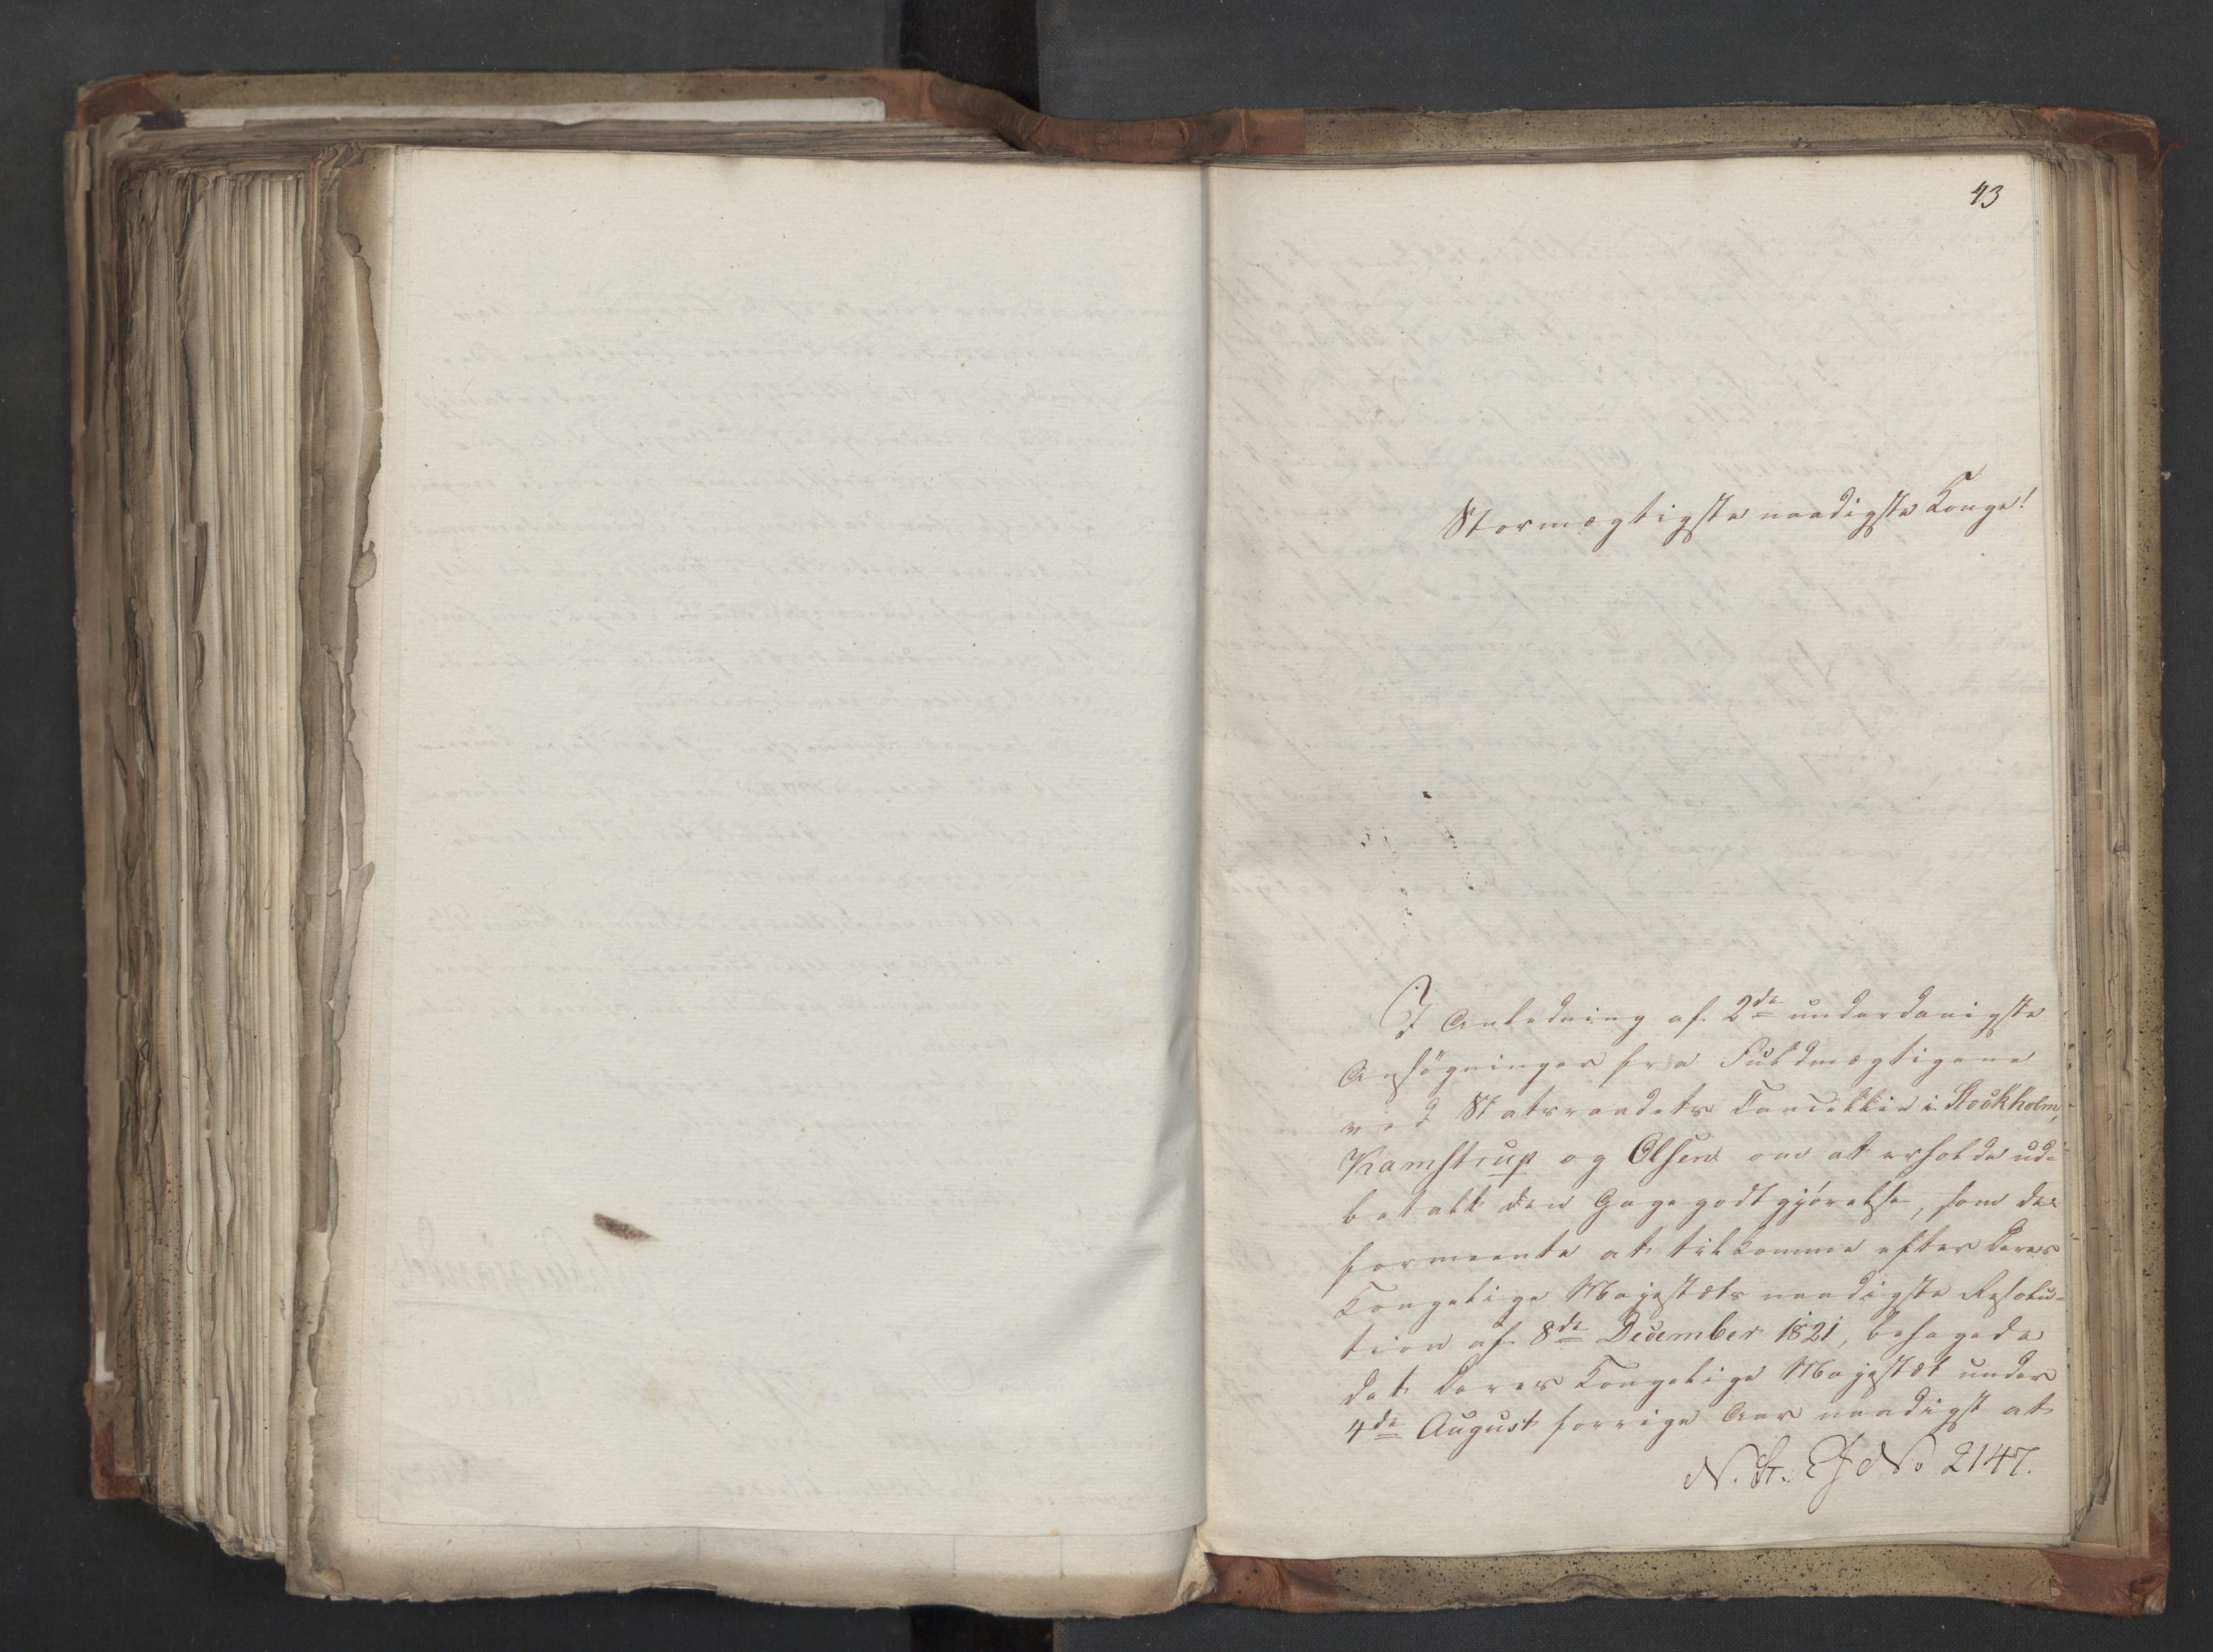 43
Stormægtigste naadigste Konge!
I Anledning af 2de underdanigste
Ansøgninger fra Fuldmægtigene
ved Statsraadets Cancellie i Stockholm,
Kamstrup og Olsen om at erholde ud-
betalt den Gagegodtgjørelse, som de
formeente at tilkomme efter Deres
Kongelige Majestæts naadigste Resolu-
tion af 8de December 1821, behagede
det Deres Kongelige Majestæt under
4de August forrige Aar naadigst at
N. St. E J No 2147.